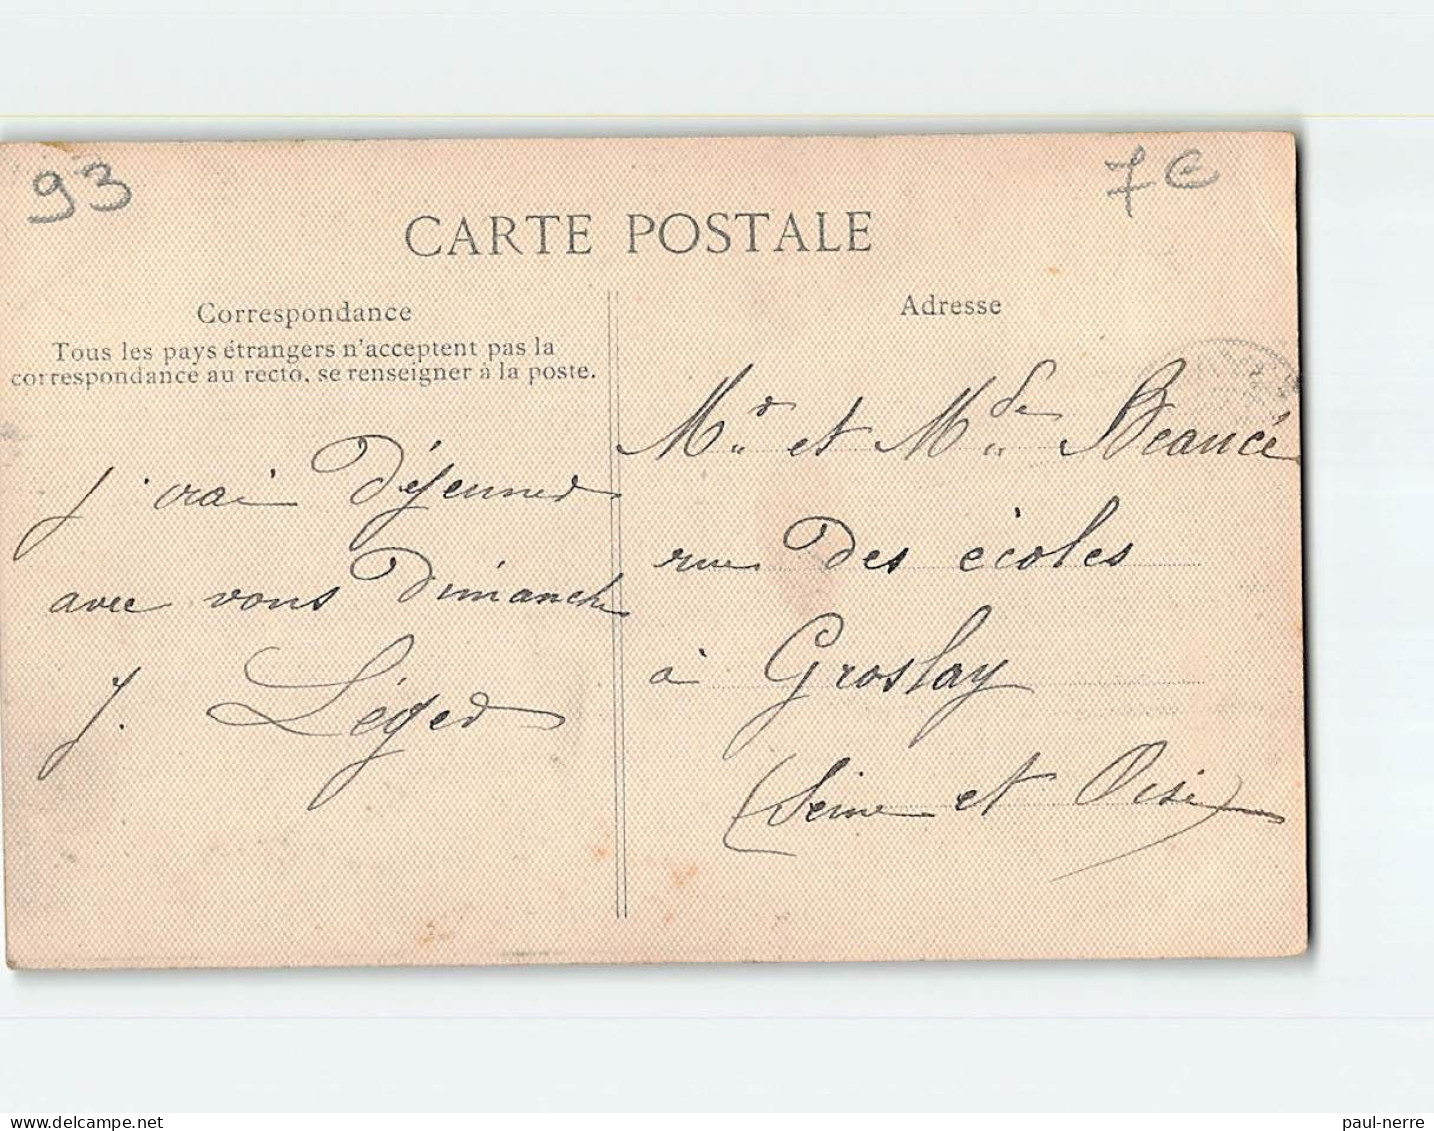 93
7€
CARTE POSTALE
Correspondance
Tous les pays étrangers n'acceptent pas la
correspondance au recto, se renseigner à la poste.
Adresse
j'irai Déjeuner
avec vous Dimanche
J. Léger
Mr et Mde Beaucé
rue Des écoles
à Groslay
(Seine et Oise)
paul-nerre